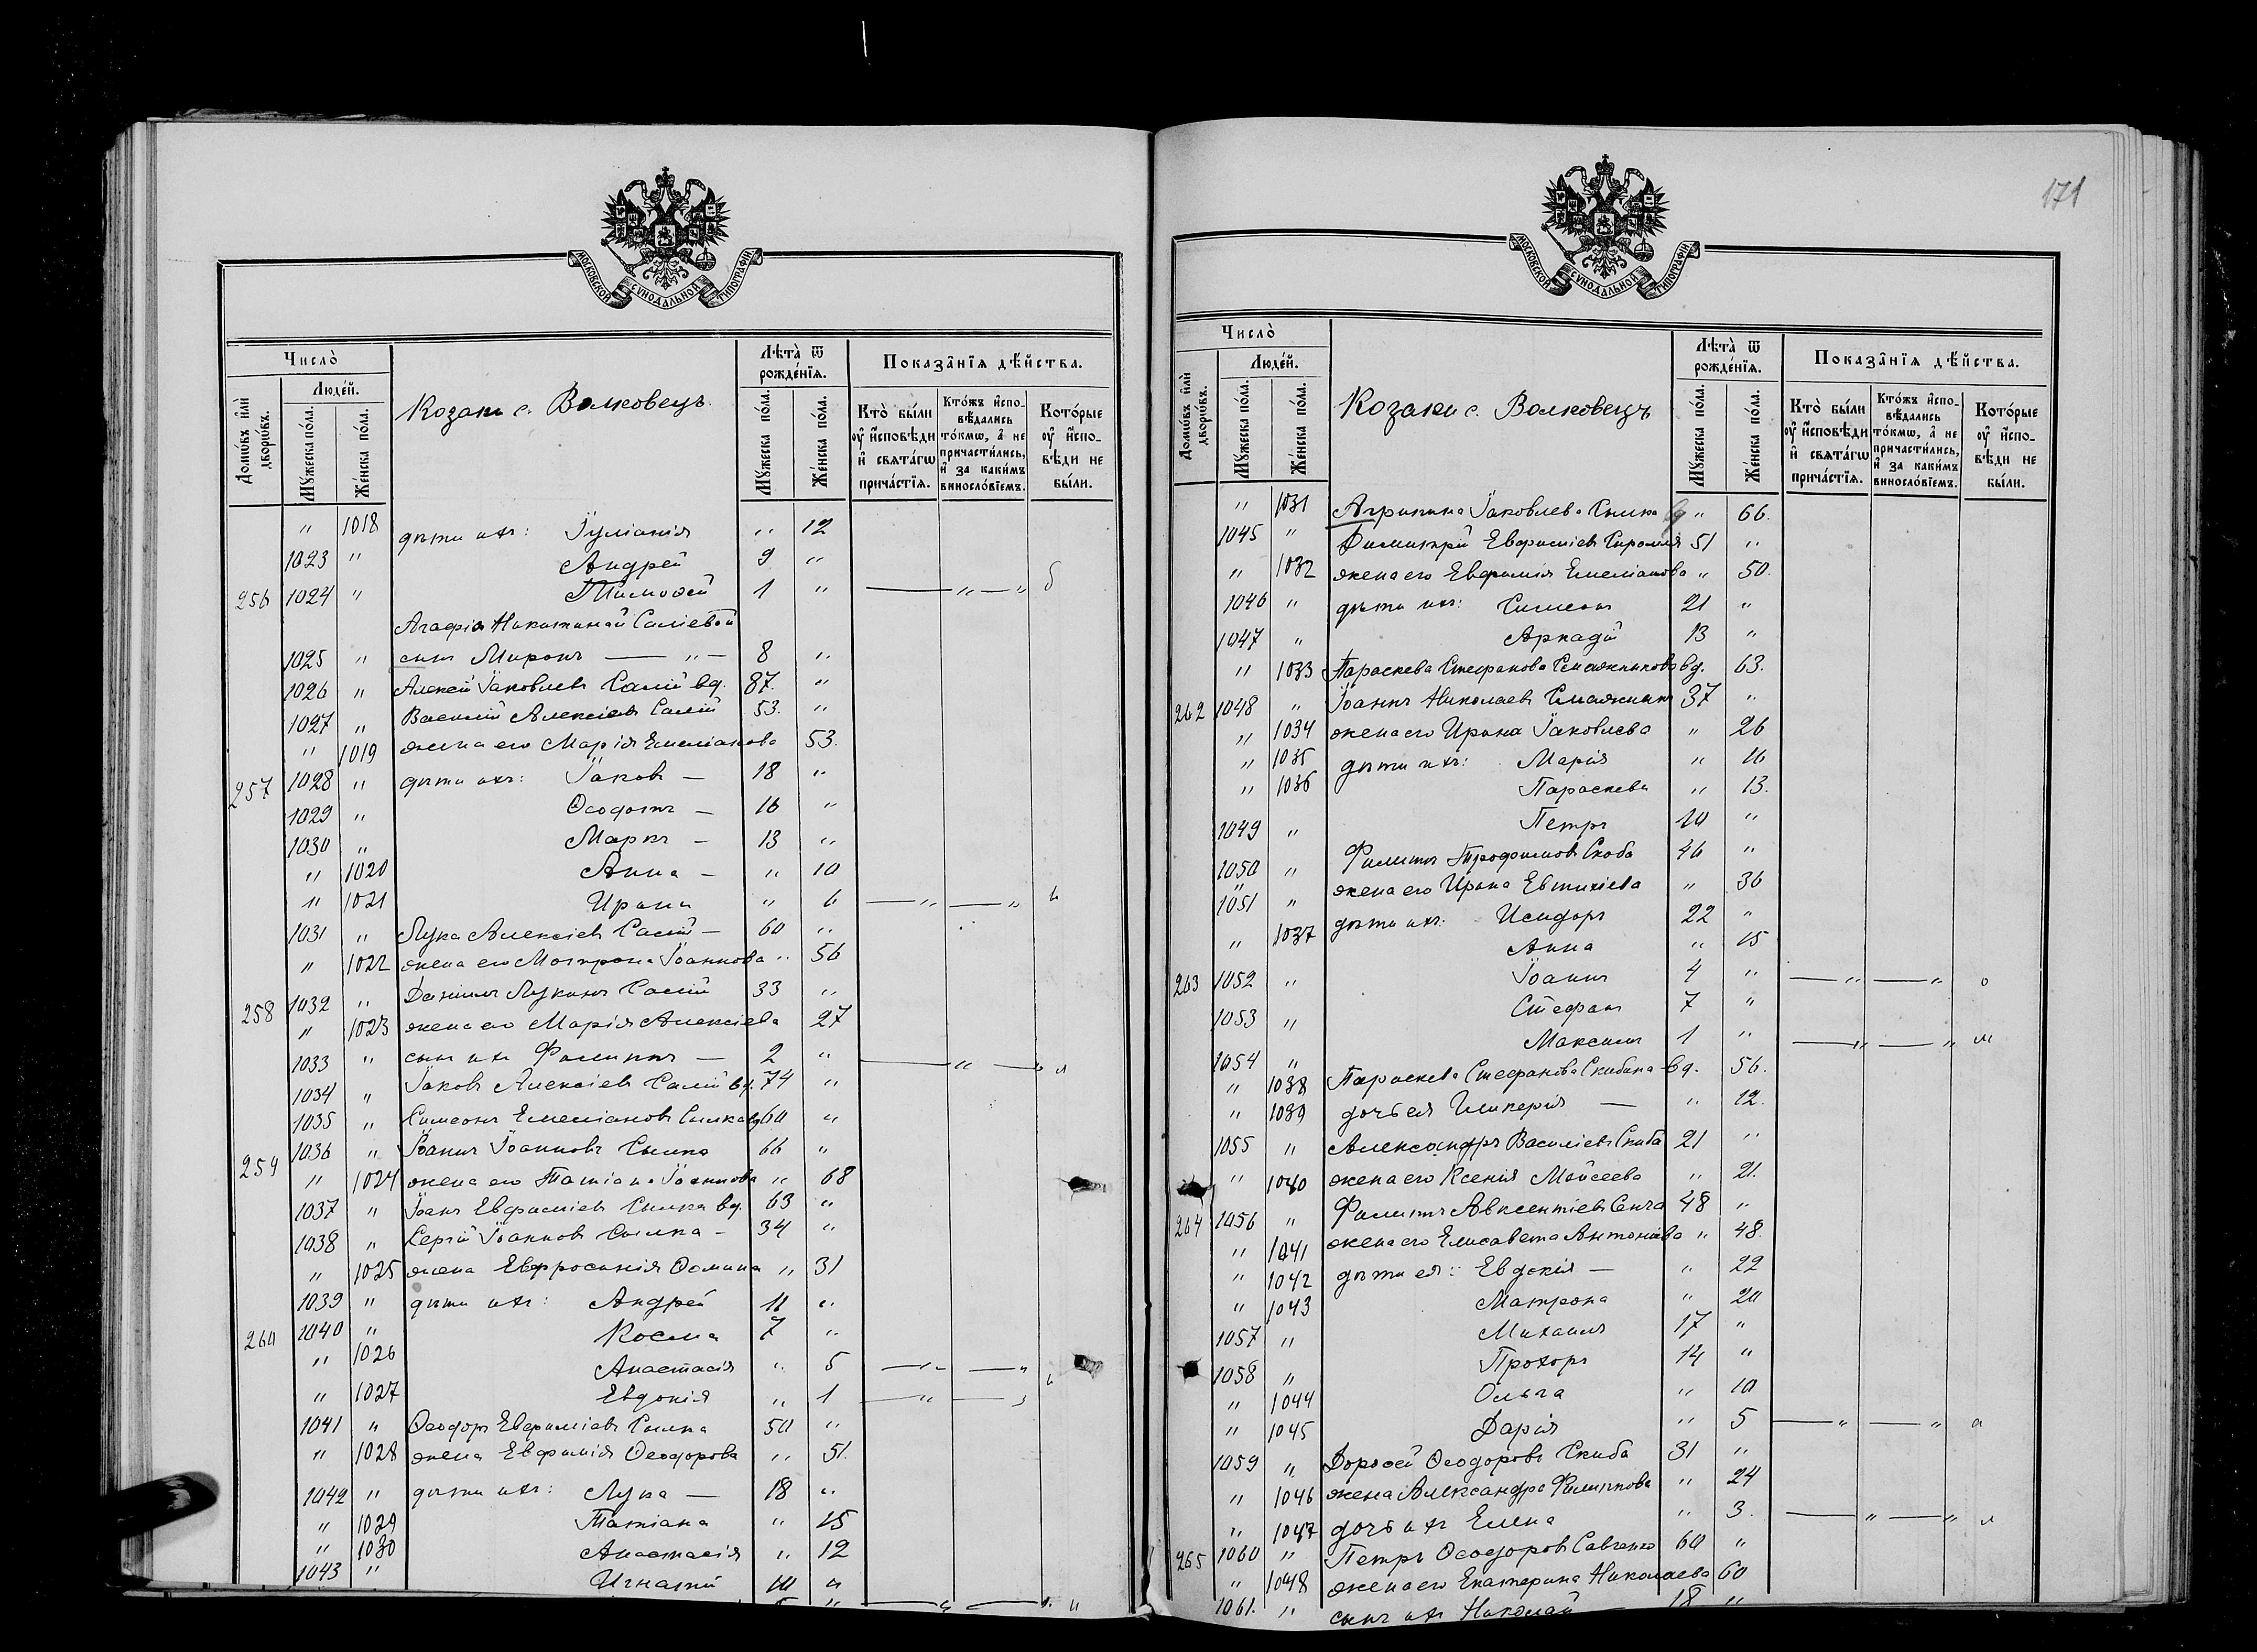 МОСКОВСКОЙ СУНОДАЛЬНОЙ ТИПОГРАФІИ
Число̀
Домѡ́въ и҆лѝ дворѡ́въ.
Люде́й.
Мꙋ́жеска по́ла.
Же́нска по́ла.
Козаки с. Волковецъ.
Лѣ́та ѿ рожде́нїя.
Мꙋ́жеска по́ла.
Же́нска по́ла.
Показа̑нїя дѣ́йства.
Кто̀ бы́ли оу҆ и҆сповѣ́ди и҆ свята́гѡ прича́стїя.
Кто́жъ и҆спо-вѣ́дались то́кмѡ, а҆ не причасти́лись, и҆ за каки́мъ винословїемъ.
Кото́рые оу҆ и҆спо-вѣ́ди не бы́ли.
" 1018 дѣти ихъ: Іуліанія " 12
1023 " Андрей 9 "
256 1024 " Тимофей 1 " — " — " б
Агафіи Никитиной Саліевой
1025 " сынъ Миронъ — " — 8 "
1026 " Алексій Іаковлевъ Салій вд. 87. "
1027 " Василій Алексіевъ Салій 53. "
" 1019 жена его Марія Емеліанова 53.
257 1028 " дѣти ихъ: Іаковъ — 18 "
1029 " Ѳеодотъ — 16 "
1030 " Маркъ — 13 "
" 1020 Анна — " 10
" 1021 Ирина " 6 — " — "
1031 " Лука Алексіевъ Салій — 60 "
" 1022 жена его Матрона Іоаннова " 56
258 1032 " Даніилъ Лукинъ Салій 33 "
" 1023 жена его Марія Алексіева 27
1033 " сынъ ихъ Филиппъ — 2 " — " — "
1034 " Іаковъ Алексіевъ Салій вд. 74 "
1035 " Симеонъ Емеліановъ Сылка вд 60 "
259 1036 " Іоаннъ Іоанновъ Сылка 66 "
" 1024 жена его Татіана Іоаннова " 68
1037 " Іоаннъ Евфиміевъ Сылка вд. 63 "
1038 " Сергій Іоанновъ Сылка — 34 "
" 1025 жена Евфросинія Ѳомина " 31
1039 " дѣти ихъ: Андрей 11 "
260 1040 " Косма 7 "
" 1026 Анастасія " 5 — " — "
" 1027 Евдокія " 1 — " —
1041 " Ѳеодоръ Евфиміевъ Сылка 50 "
" 1028 жена Евфимія Ѳеодорова " 51.
1042 " дѣти ихъ: Лука — 18 "
" 1029 Татіана " 15
" 1030 Анастасія " 12
1043 " Игнатій 10 "
171
МОСКОВСКОЙ СУНОДАЛЬНОЙ ТИПОГРАФІИ
Число̀
Домѡ́въ и҆лѝ дворѡ́въ.
Люде́й.
Мꙋ́жеска по́ла.
Же́нска по́ла.
Козаки с. Волковецъ
Лѣ́та ѿ рожде́нїя.
Мꙋ́жеска по́ла.
Же́нска по́ла.
Показа̑нїя дѣ́йства.
Кто̀ бы́ли оу҆ и҆сповѣ́ди и҆ свята́гѡ прича́стїя.
Кто́жъ и҆спо-вѣ́дались то́кмѡ, а҆ не причасти́лись, и҆ за каки́мъ винословїемъ.
Кото́рые оу҆ и҆спо-вѣ́ди не бы́ли.
" 1031 Агрипина Іаковлева Сылка " 66.
1045 " Димитрій Евфиміевъ 51 "
" 1032 жена его Евфимія Емеліанова " 50.
1046 " дѣти ихъ: Симеонъ 21 "
1047 " Аркадій 13 "
" 1033 Параскева Стефанова Смажникова вд. 63.
262 1048 " Іоаннъ Николаевъ Смажникъ 37 "
" 1034 жена его Ирина Іаковлева " 26
" 1035 дѣти ихъ: Марія " 16
" 1036 Параскева " 13.
1049 " Петръ 10 "
1050 " Филиппъ Трофимовъ Скоба 46 "
" " жена его Ирина Евтихіева " 36
1051 " дѣти ихъ: Исидоръ 22 "
" 1037 Анна " 15
263 1052 " Іоаннъ 4 " — " — "
1053 " Стефанъ 7 "
1054 " Максимъ 1 " — " — "
" 1038 Параскева Стефанова Скибина вд. 56.
" 1039 дочь ея Гликерія — " 12.
1055 " Александръ Василіевъ Скиба 21 "
" 1040 жена его Ксенія Мойсеева " 21.
264 1056 " Филиппъ Авксентіевъ 48 "
" 1041 жена его Елисавета Антоніева " 48.
" 1042 дѣти ея: Евдокія — " 22
" 1043 Матрона " 20
1057 " Михаилъ 17 "
1058 " Прохоръ 14 "
" 1044 Ольга " 10
" 1045 Дарія " 5 — " — "
1059 " Дорофей Ѳеодоровъ Скиба 31 "
" 1046 жена Александра Филиппова " 24
" 1047 дочь ихъ Елена " 3. — " — "
265 1060 " Петръ Ѳеодоровъ Савченко 60 "
" 1048 жена его Екатерина Николаева 60
1061. " сынъ ихъ Николай — 18 "